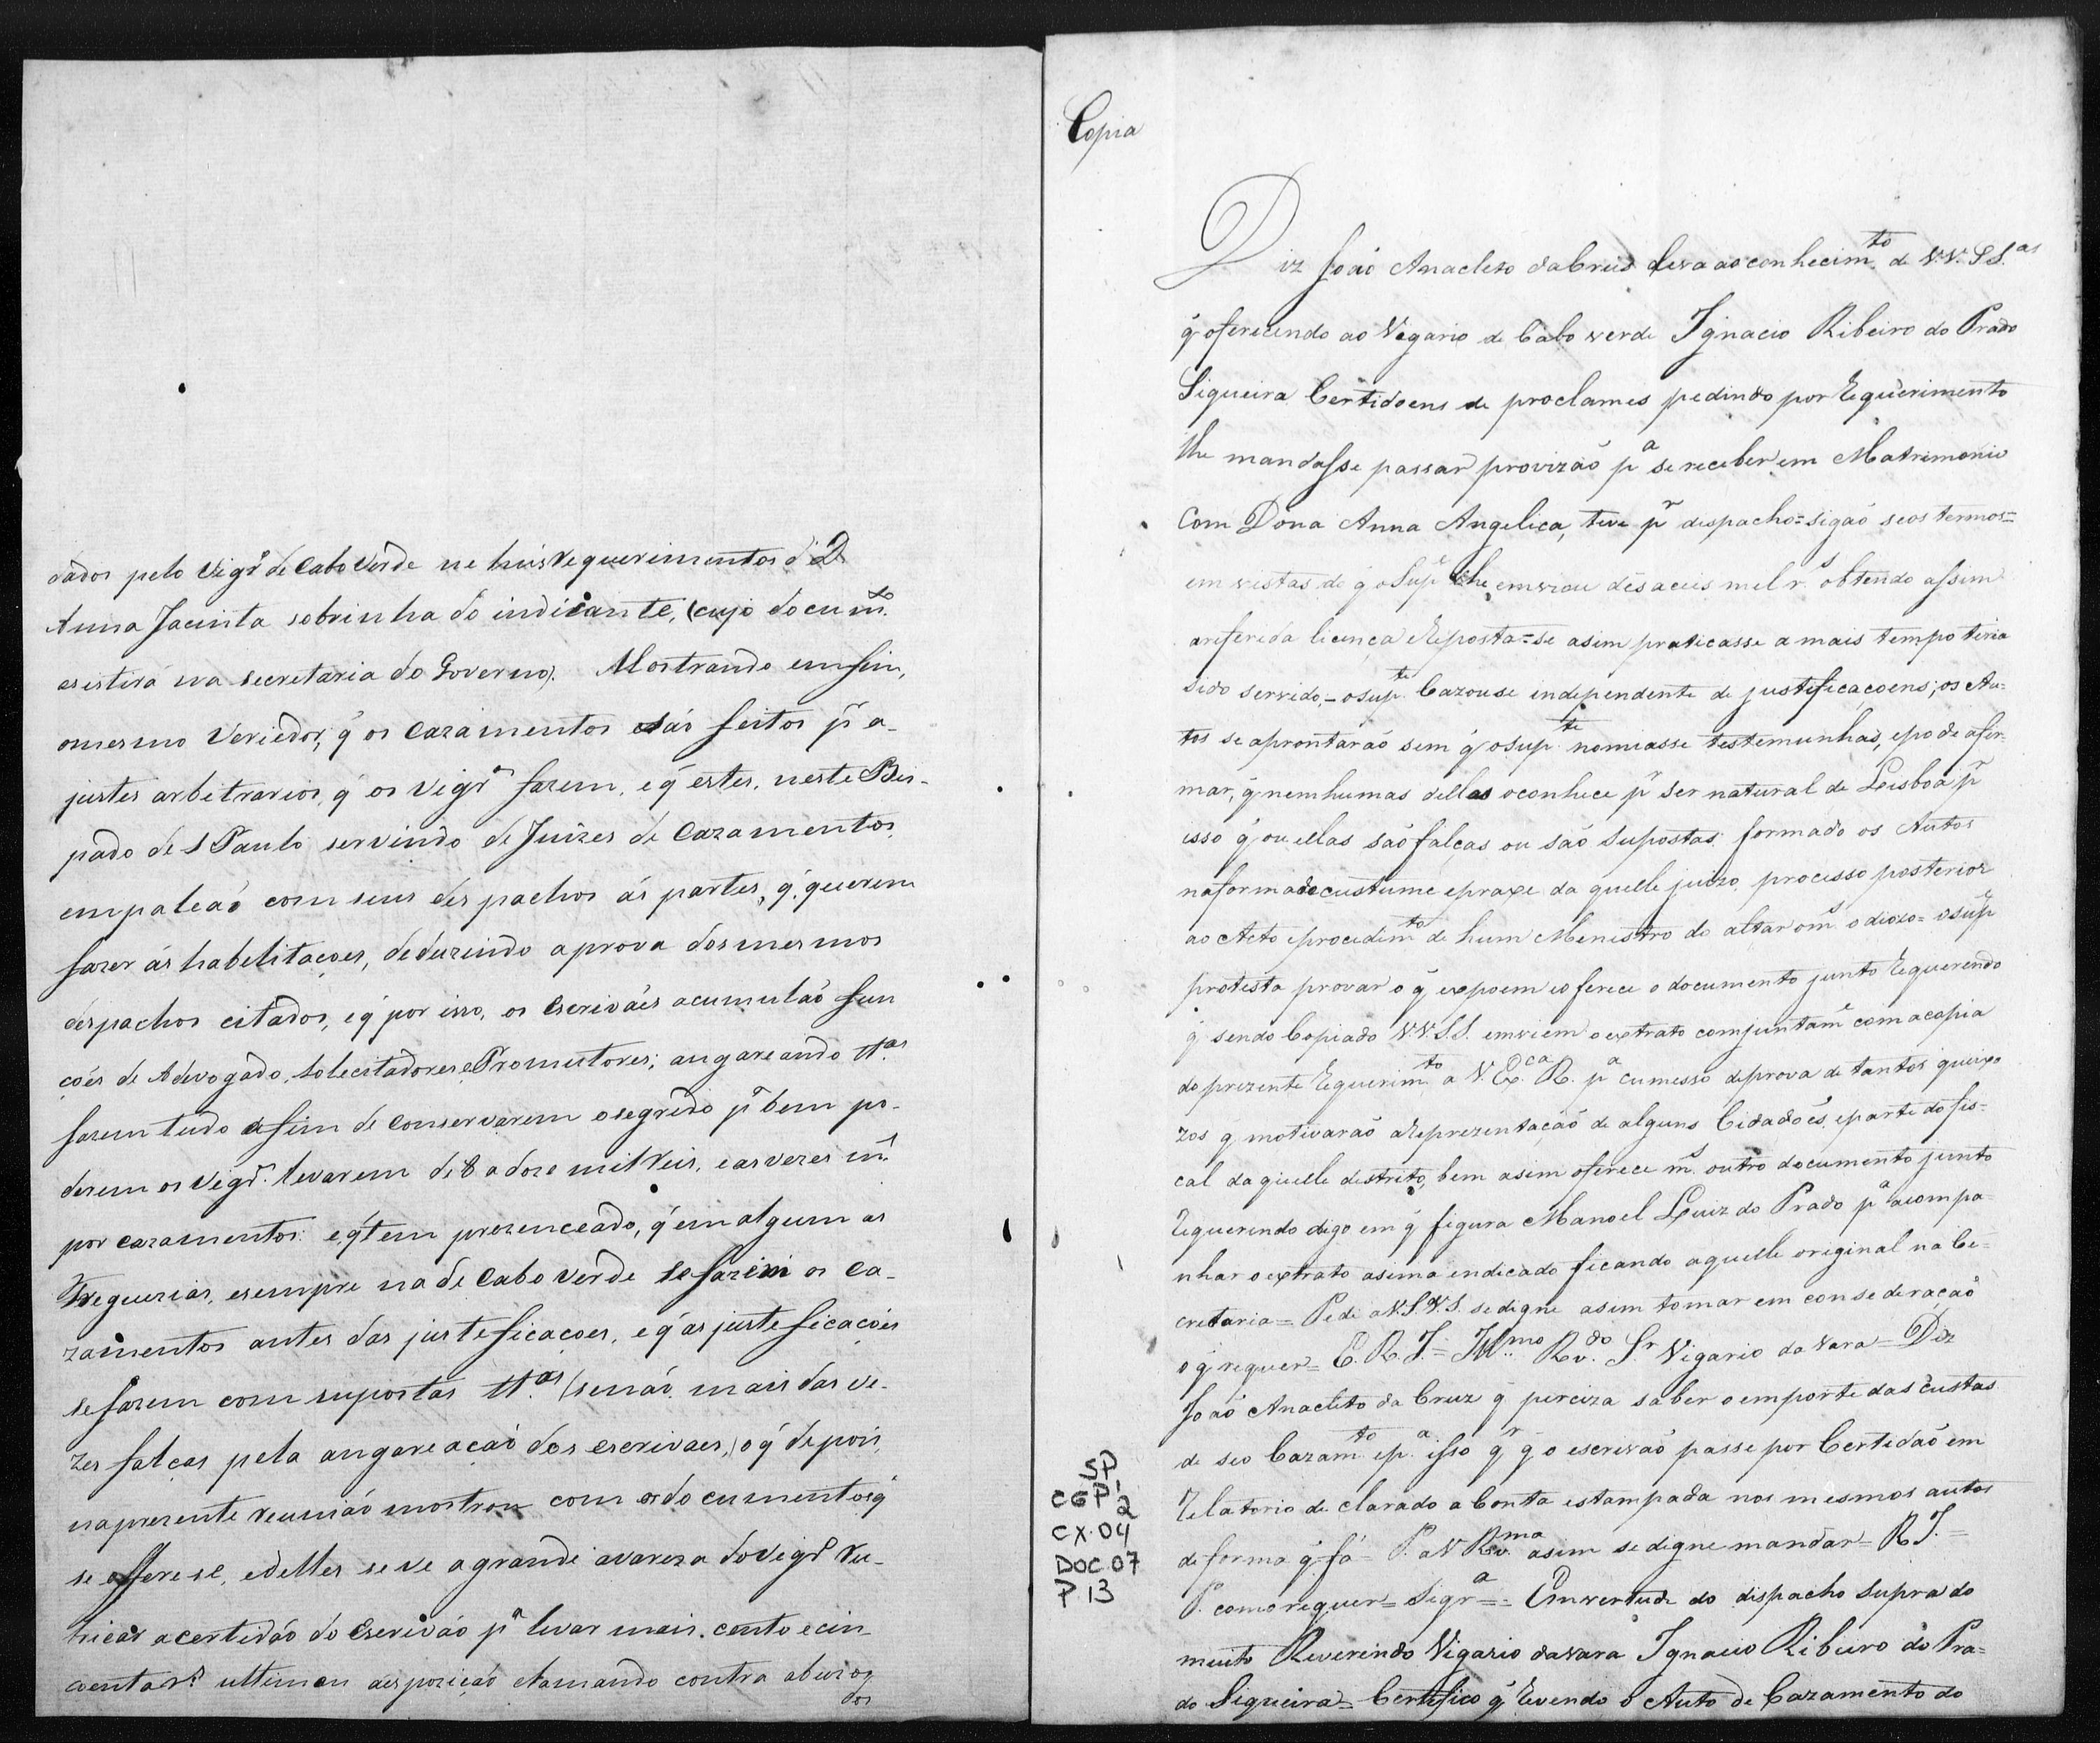 dados pelo Vigr.º de Cabo Verde ne huis Requerimentos d'D
Anna Jacinta sobrinha do indicante, (cujo docum.to
esistirá na secretaria do Governo). Mostrando emfim,
omesmo Veriedor, q̃ os Cazamentos são feitos pr a-
justes arbetrarios, q̃ os Vigr.os fazem, e q̃ estes, neste Bis-
pado de S Paulo servindo de Juizes de Cazamentos
empateaõ com seus despachos ás partes, q̃ querem
fazer ás habelitaçoes, deduzindo a prova dos mesmos
despachos citados, e q̃ por isso, os Escrivães acumulaõ fun
çoés de Advogado, Solecitadores e Promutores; angareando tt.as
fazem tudo afim de conservarem o segredo pa bem po-
derem os Vigr.os levarem de 8 a doze mil reis, e as vezes ms
por cazamentos: e q̃ tem prezenceado, q̃ em algum as
Freguezias, e sempre na de Cabo Verde se fazem os Ca-
zamentos antes das justeficaçoes, e q̃ as justeficaçoés
se fazem com supostas tt.as (senaõ mais das ve-
zes falças pela angareaçaõ dos escrivaes,) o q̃ depois,
na prezente reuniaõ mostrou com os documentos q̃
se offerese, e delles se ve a grande avareza do Vigr.º Ru-
bricar a certidaõ do Escrivaõ pa levar mais cento e cin-
coenta rs. ultimou a esposiçaõ clamando contra abuzos
dos
Copia
Diz João Anacleto da Cruz leva ao conhecim.to de V.V. S S.as
q̃ oferecendo ao Vegario de Cabo verde Ignacio Ribeiro do Prado
Siqueira Certidoens de proclames pedindo por Requerimento
lhe mandasse passar provizaõ p.a se receber em Matrimonio
Com Dona Anna Angelica, teve pr despacho = sigaõ seos termos =
em vistas de q̃ o Sup.e lhe enviou desaceis mel r.s obtendo assim
areferida licença Reposta = se asim praticasse a mais tempo teria
sido servido, = o sup.te Cazouse independente de justificaçoens; os Au=
tos se aprontaraõ sem q̃ o sup.te nomiasse testemunhas, e pode afir-
mar, q̃ nemhumas dellas o conhece pr ser natural de Leisboa pr
isso q̃ ou ellas saõ falças ou saõ Supostas formado os Autos
na forma do custume e praxe da quelle juizo processo posterior
ao Acto e procedim.to de hum Menistro do altar o m.s odiozo = o sup.e
protesta provar o q̃ expoem e oferece o documento junto Requerendo
q̃ sendo Copiado V.V.S.S. enviem o extrato comjuntam.e com a copia
do prezente Requerim.to a V. Ex.ca R. p.a cumesso de prova de tantos queixo
zos q̃ motivaraõ a Reprezentaçaõ de alguns Cidadoẽs, e parte do fis=
cal da quelle destrito, bem asim oferece m.s outro documento junto
Requerendo digo em q̃ figura Manoel Luiz do Prado p.a acompa-
nhar o extrato asima indicado ficando aquelle original na Ce=
cretaria = Pede a V.S.V.S. se digne asim tomar em consederaçaõ
o q̃ requer = E. R. J. = Ill.mo Rev.do S.r Vigario da Vara = Diz
Joaõ Anacleto da Cruz q̃ perciza saber o emporte das Custas
de seo Cazam.to e p.a isso qr q̃ o escrivaõ passe por Certidaõ em
Relatorio declarado a Conta estampada nos mesmos autos
de forma q̃ fá = P. a V Rev.ma asim se digne mandar = R J. =
P. como requer = Sigr.a = Em vertude do dispacho Supra do
muito Reverendo Vigario da vara Ignacio Ribeiro do Pra=
do Siqueira = Certefico q̃ Revendo o Auto de Cazamento do
SP
CGP1
2
CX.04
DOC.07
P 13